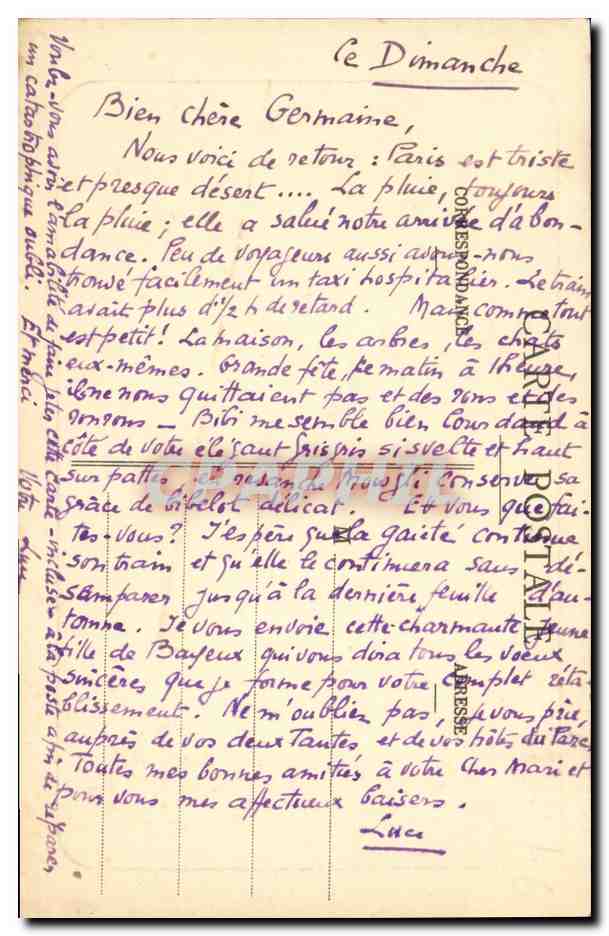 Ce Dimanche
Bien chère Germaine,
Nous voici de retour : Paris est triste
et presque désert .... La pluie, toujours
la pluie ; elle a salué notre arrivée d'abon-
dance. Peu de voyageurs aussi avons-nous
trouvé facilement un taxi hospitalier. Le train
avait plus d'1/2 h de retard. Mais comme tout
est petit ! La maison, les arbres, les chats
eux-mêmes. Grande fête, ce matin à 1 heure,
ils ne nous quittaient pas et des rons et des
ronrons — Bibi me semble bien lourdaud à
côté de votre élégant Grisgris si svelte et haut
sur pattes, et Mowgli conserve sa
grâce de bibelot délicat. Et vous que fai-
tes-vous ? J'espère que la gaieté continue
son train et qu'elle le continuera sans dé-
semparer jusqu'à la dernière feuille d'au-
tomne. Je vous envoie cette charmante jeune
fille de Bayeux qui vous dira tous les voeux
sincères que je forme pour votre complet réta-
blissement. Ne m'oubliez pas, je vous prie,
auprès de vos deux Tantes et de vos hôtes du Parc
Toutes mes bonnes amitiés à votre Cher Mari et
pour vous mes affectueux baisers.
Luce
Voulez-vous avoir l'amabilité de faire jeter cette carte - incluse - à la poste afin de réparer
un catastrophique oubli. Et merci Votre Luce
CARTE POSTALE
CORRESPONDANCE
ADRESSE
M
CPAPHIL